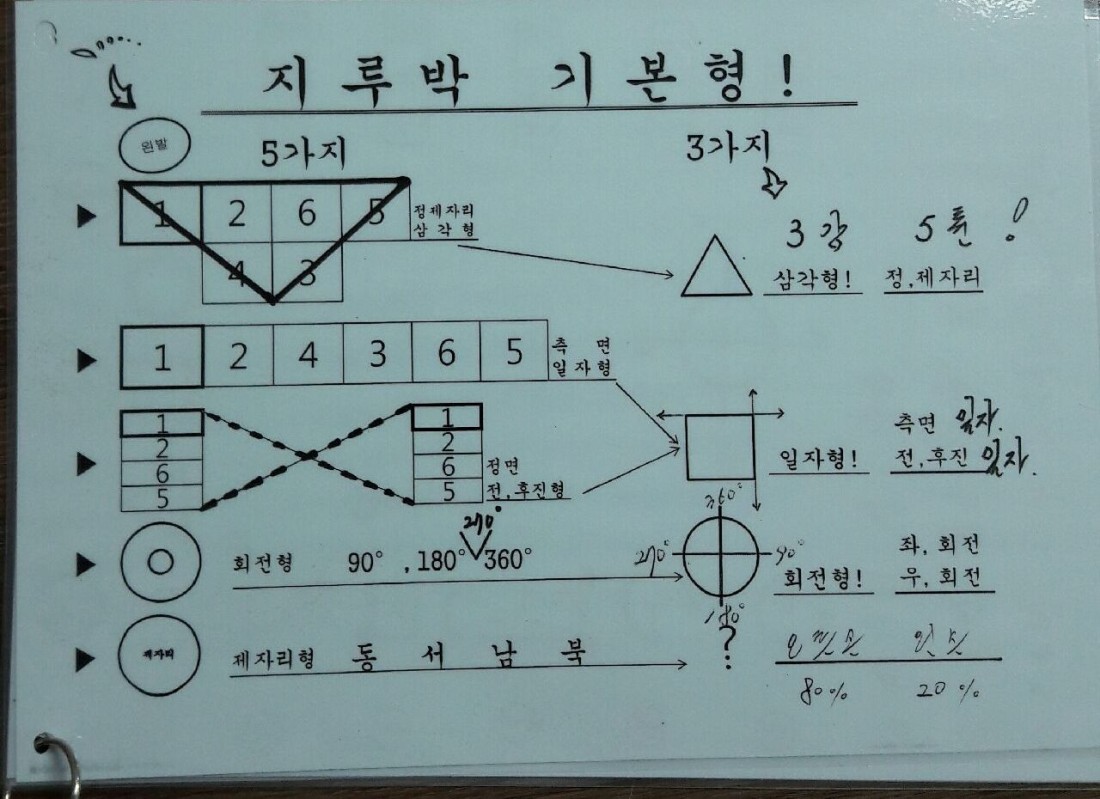 지루박 기본형!
왼발 5가지 3가지
1 2 6 5 정제자리
삼각형
4 3
3각 5튼!
삼각형! 정,제자리
1 2 4 3 6 5 측면
일자형
1 1
2 2
6 6 정면
5 5 전,후진형
측면 일자.
일자형! 전,후진 일자.
회전형 90° ,180° 270° 360°
360°
270° 90°
180°
회전형! 좌,회전
우,회전
제자리
제자리형 동 서 남 북
?
80% 20%